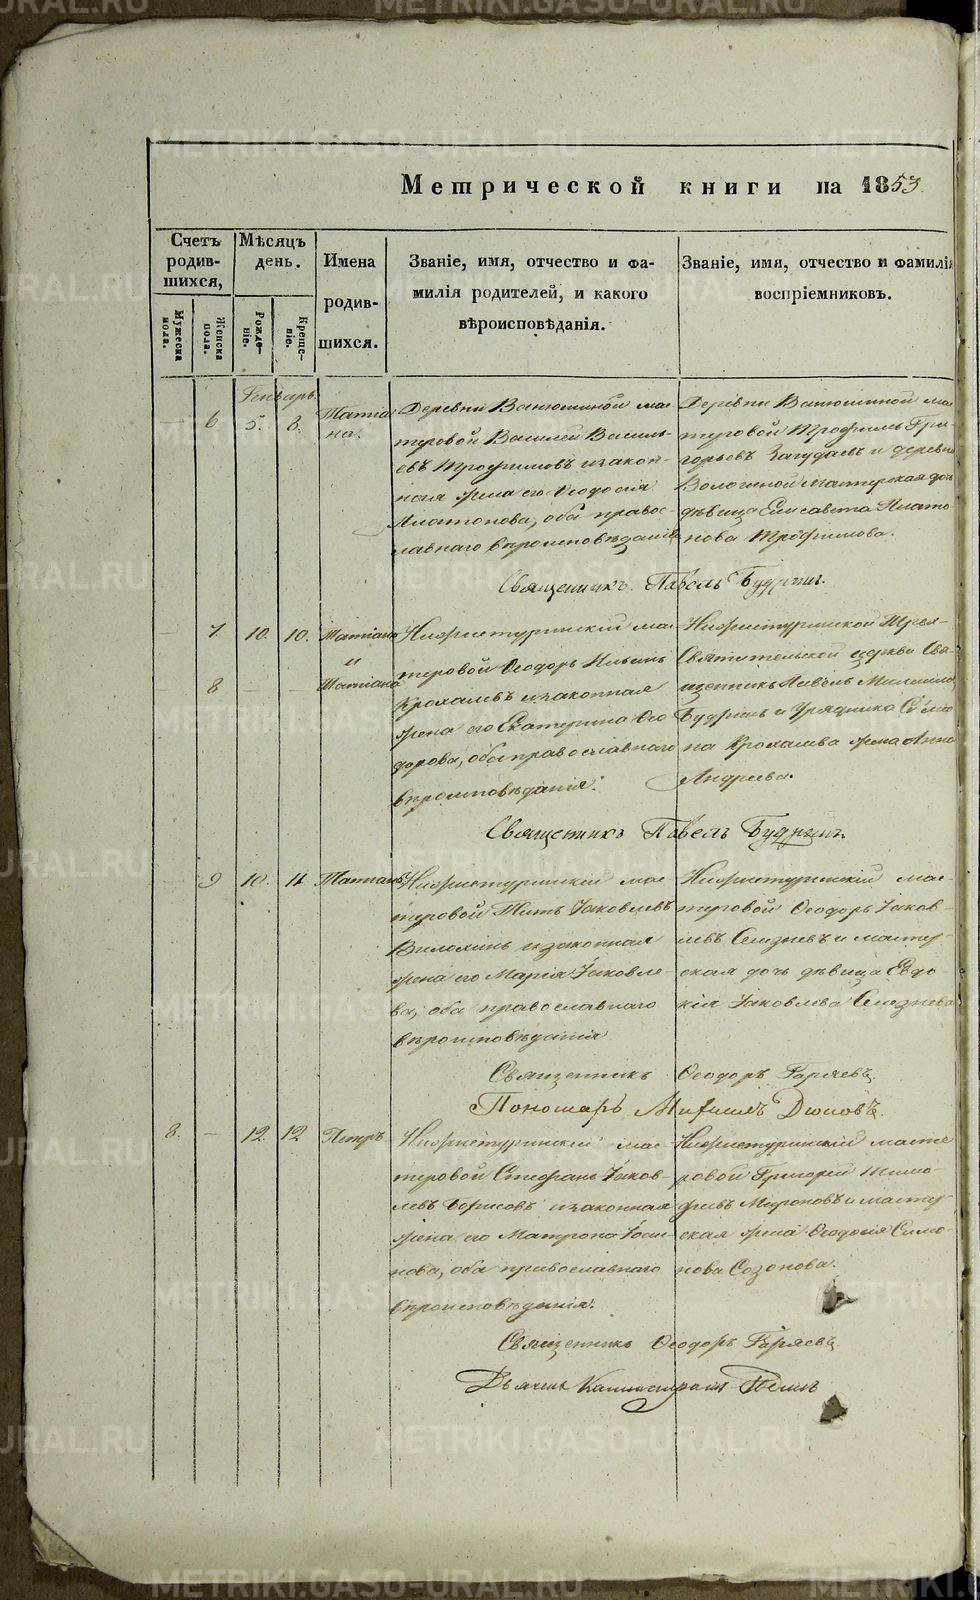 Метрической книги на 1853.
Счетъ родив-шихся,
Мѣсяцъ день.
Имена родив-шихся.
Званіе, имя, отчество и фа-
милія родителей, и какого
вѣроисповѣданія.
Званіе, имя, отчество и фамилія
воспріемниковъ.
Мужеска пола.
Женска пола.
Рожде-ніе.
Креще-ніе.
Генварь.
— 6 5. 8. Татіа-на.
Деревни Ванюшиной ма-
стеровой Василей Василь-
евъ Трофимовъ и закон-
ная жена его Ѳеодосія
Платонова, оба право-
славнаго вѣроисповѣданія
Деревни Ванюшиной ма-
стеровой Трофимъ Гри-
горьевъ и деревни
Мастерская дочь
дѣвица Елисавета Плато-
нова Трофимова.
Священникъ Павелъ Будринъ.
— 7. 10. 10. Татіана
и
8 — — Татіана
Нижнетуринскій ма-
стеровой Ѳеодоръ Ильинъ
Крохалевъ и законная
жена его Екатерина Ѳео-
дорова, оба православнаго
вѣроисповѣданія.
Нижнетуринской Трех-
Святительской церкви Свя-
щенникъ Павелъ
Будринъ и Урядника Симео-
на Крохалева жена Анна
Андреева.
Священникъ Павелъ Будринъ
9 10. 11. Татіана
Нижнетуринскій мас-
теровой Титъ Іаковлевъ
и законная
жена его Марія Іаковле-
ва, оба православнаго
вѣроисповѣданія
Нижнетуринскій мас-
теровой Ѳеодоръ Іаков-
левъ Селезневъ и мастер-
ская дочь дѣвица Евдо-
кія Іаковлева Селезнева
Священникъ Ѳеодоръ Гаряевъ.
Пономарь Михаилъ
8. — 12. 12 Петръ
Нижнетуринскій мас-
теровой Стефанъ Іаков-
левъ Борисовъ и законная
жена его Матрона
оба православнаго
вѣроисповѣданія.
Нижнетуринскій масте-
ровой Григорей Тимо-
феевъ Мироновъ и мастер-
ская жена Ѳеодосія Симо-
нова Созонова.
Священникъ Ѳеодоръ Гаряевъ
Дьячекъ
METRIKI.GASO-URAL.RU